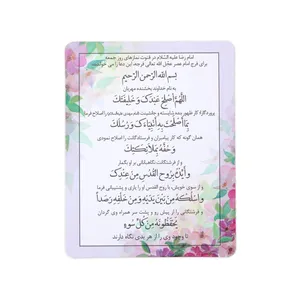 امام رضا علیه السّلام در قنوت نمازهای روز جمعه
برای فرج امام عصر عجّل الله تعالی فرجه، این دعا را می خواندند:
بسم الله الرّحمن الرّحیم
به نام خداوند بخشنده مهربان
اَللّهُمَّ اَصْلِحْ عَبْدَکَ وَ خَلیفَتَکَ
پروردگارا کار ظهور بنده شایسته و جانشینت
بِما اَصْلَحْتَ بِهِ اَنْبِیاءَکَ وَ رُسُلَکَ
همان گونه که کار پیامبران و فرستادگانت را اصلاح نمودی
وَ حُفَّهُ بِمَلائِکَتِکَ
و از فرشتگانت نگاهبانانی بر او بگمار
وَ اَیِّدْهُ بِرُوحِ الْقُدُسِ مِنْ عِنْدِکَ
و از سوی خویش، با روح القدس او را یاری و پشتیبانی فرما
وَ اسْلُکْهُ مِنْ بَیْنِ یَدَیْهِ وَ مِنْ خَلْفِهِ رَصَداً
و فرشتگانی را از پیش رو و پشت سر همراه وی گردان
یَحْفَظُونَهُ مِنْ کُلِّ سُوءٍ
تا وجود وی را از هر بدی نگاه دارند